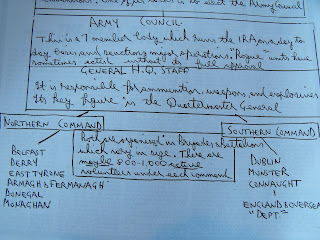 ARMY COUNCIL
This is a 7 member body which runs the IRA on a day to
day basis and sanctions major operations. "Rogue units have
sometimes acted without its full approval
GENERAL H.Q. STAFF
It is responsible for ammunition, weapons and explosives
Its key figure is the Quartermaster General
NORTHERN COMMAND
BELFAST
DERRY
EAST TYRONE
ARMAGH & FERMANAGH
DONEGAL
MONAGHAN
Both are organised in Brigades & battalions
which vary in size. There are
maybe 800-1,000 active
volunteers under each command
SOUTHERN COMMAND
DUBLIN
MUNSTER
CONNAUGHT
ENGLAND & OVERSEA
"DEPT."